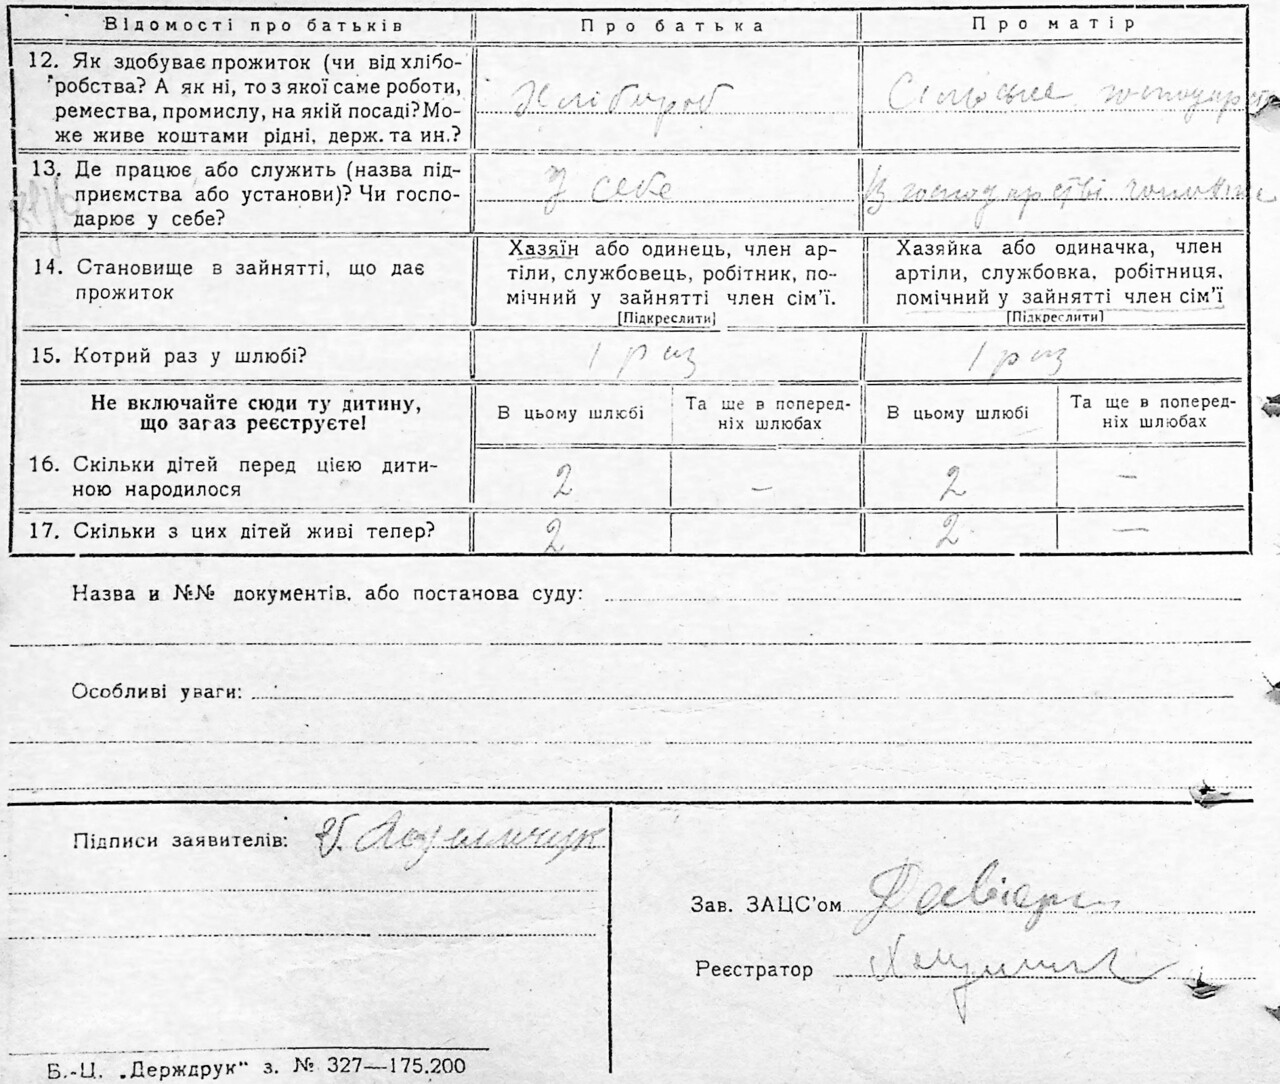 Відомості про батьків
Про батька
Про матір
12. Як здобуває прожиток (чи від хлібо-
робства? А як ні, то з якої саме роботи,
ремества, промислу, на якій посаді? Мо-
же живе коштами рідні, держ. та ин.?
Хлібороб
Сільське господарство
13. Де працює або служить (назва під-
приємства або установи)? Чи госпо-
дарює у себе?
У себе
В господарстві чоловіка
14. Становище в зайнятті, що дає
прожиток
Хазяїн або одинець, член ар-
тіли, службовець, робітник, по-
мічний у зайнятті член сім'ї.
[Підкреслити]
Хазяйка або одиначка, член
артіли, службовка, робітниця,
помічний у зайнятті член сім'ї
[Підкреслити]
15. Котрий раз у шлюбі?
1 раз
1 раз
Не включайте сюди ту дитину,
що загаз реєструєте!
В цьому шлюбі
Та ще в поперед-
ніх шлюбах
В цьому шлюбі
Та ще в поперед-
ніх шлюбах
16. Скільки дітей перед цією дити-
ною народилося
2
–
2
–
17. Скільки з цих дітей живі тепер?
2
2
–
Назва и №№ документів, або постанова суду:
Особливі уваги:
Підписи заявителів:
Зав. ЗАЦС'ом
Реєстратор
Б.-Ц. „Держдрук" з. № 327—175.200